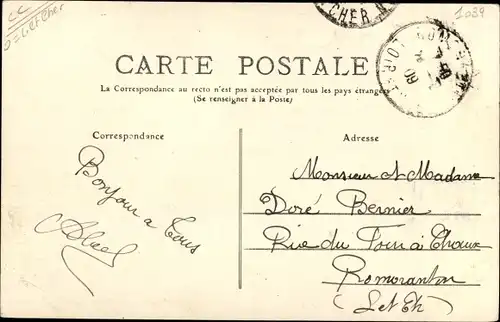 CC
1039
CHER
CARTE POSTALE
La Correspondance au recto n'est pas acceptée par tous les pays étrangers
(Se renseigner à la Poste)
Correspondance
Adresse
Bonjour a Tous
Monsieur et Madame
Doré Bernier
Rue du Four à Chaux
Romorantin
L et Ch